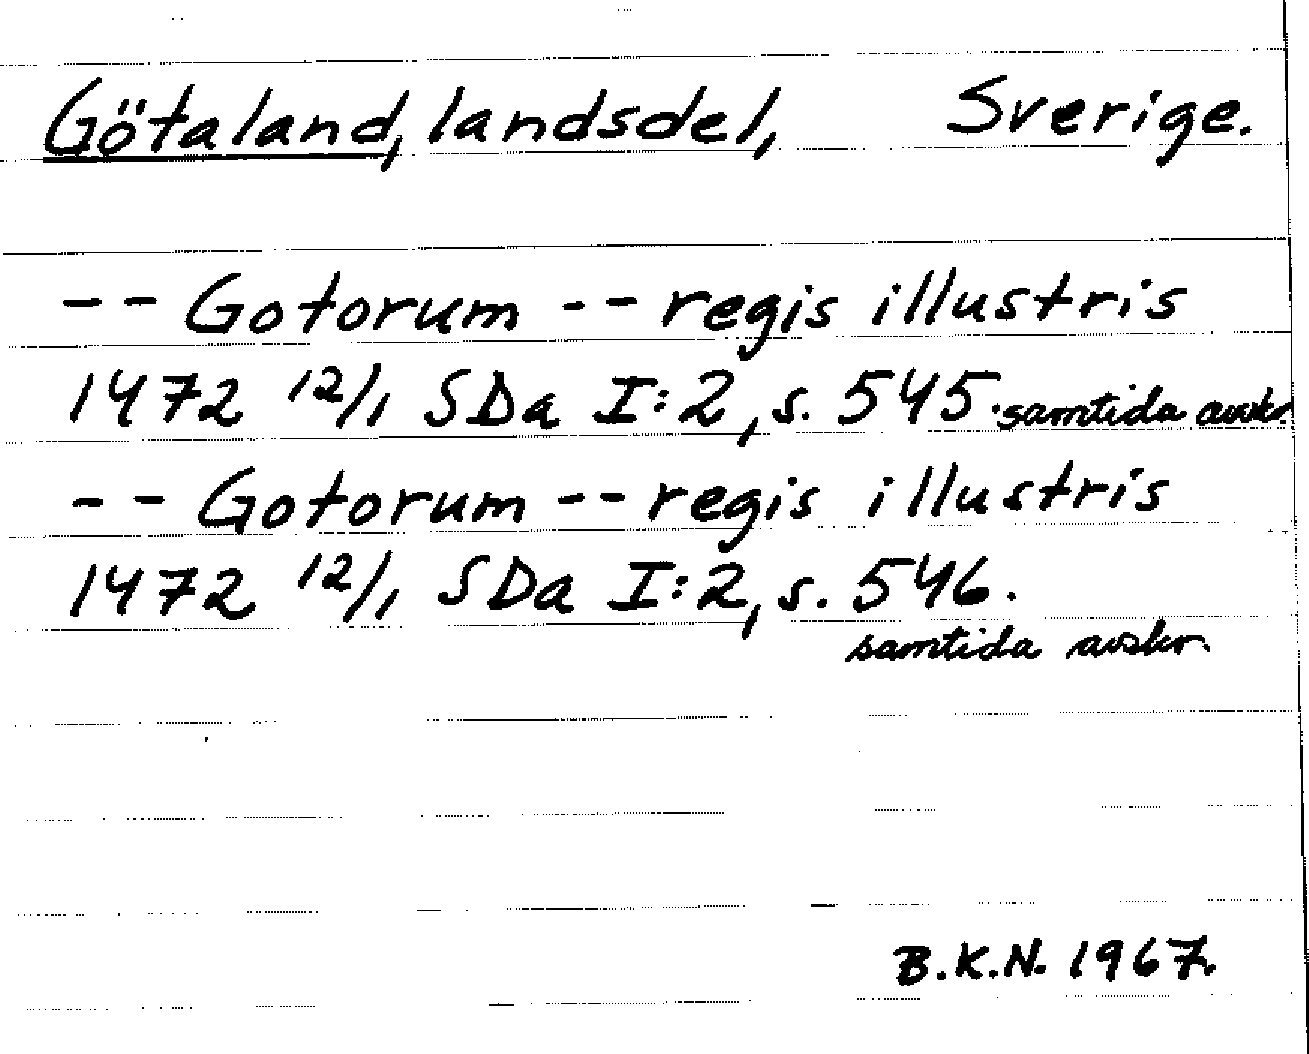 Götaland, landsdel, Sverige.
-- Gotorum -- regis illustris
1472 12/1 SDa I:2, s. 545. samtida avskr.
-- Gotorum -- regis illustris
1472 12/1 SDa I:2, s. 546.
samtida avskr.
B.K.N. 1967.